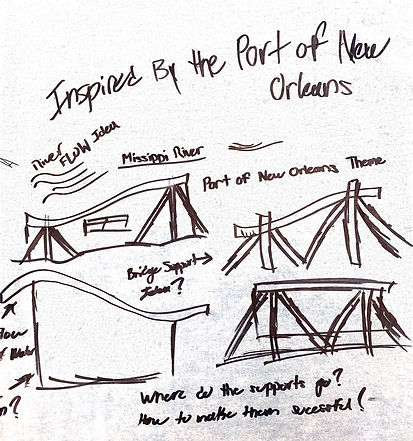 Inspired By the Port of New
Orleans
River
FLOW Idea
Missippi River
Port of New Orleans Theme
Bridge Support
Ideas?
Flow
of Water
Where do the supports go?
How to make them sucessful!